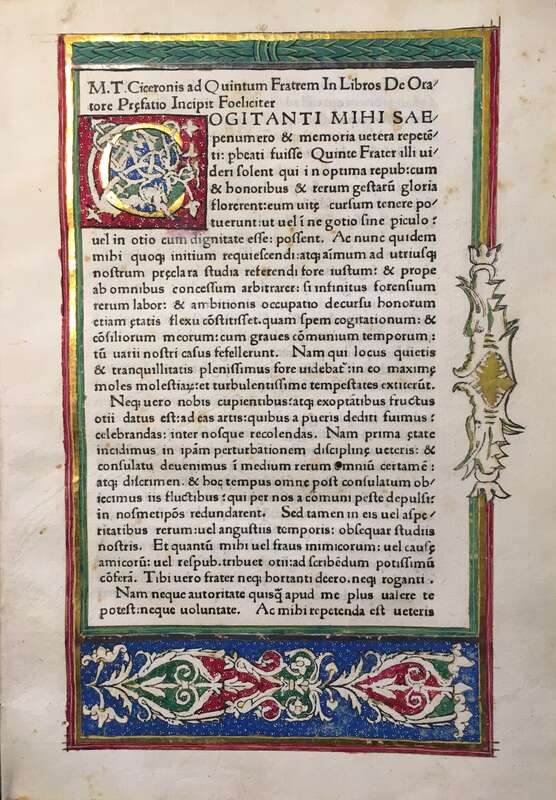 M.T.Ciceronis ad Quintum Fratrem In Libros De Ora⸗
tore Pręfatio Incipit Foeliciter
COGITANTI MIHI SAE⸗
penumero & memoria uetera repetē⸗
ti: pbeati fuisse Quinte Frater illi ui⸗
deri solent qui i n optima repub:cum
& honoribus & rerum gestarū gloria
florerent:eum uitę cursum tenere po⸗
tuerunt:ut uel ī ne gotio sine piculo :
uel in otio cum dignitate esse: possent. Ac nunc quidem
mihi quoq; initium requiescendi:atq; aīmum ad utriusq;
nostrum pręclara studia referendi fore iustum: & prope
ab omnibus concessum arbitrarer: si infinitus forensium
rerum labor: & ambitionis occupatio decursu honorum
etiam ętatis flexu cōstitisset.quam spem cogitationum: &
cōsiliorum meorum:cum graues cōmunium temporum :
tū uarii nostri casus fefellerunt. Nam qui locus quietis
& tranquillitatis plenissimus fore uidebat᷑:in eo maximę
moles molestiaᵲ:et turbulentissime tempestates extiterūt.
Neq; uero nobis cupientibus:atq; exoptātibus fructus
otii datus est:ad eas artis:quibus a pueris dediti fuimus :
celebrandas: inter nosque recolendas. Nam prima ętate
incidimus in ipām perturbationem disciplinę ueteris: &
consulatu deuenimus ī medium rerum omniū certamē :
atq; discrimen. & hoc tempus omne post consulatum ob⸗
iecimus iis fluctibus :qui per nos a cōmuni peste depulsi:
in nosmetipōs redundarent. Sed tamen in eis uel aspe⸗
ritatibus rerum:uel angustiis temporis: obsequar studiis
nostris. Et quantū mihi uel fraus inimicorum: uel causę
amicorū: uel respub.tribuet otii:ad scribēdum potissimū
cōferā. Tibi uero frater neq; hortanti deero.neq; roganti .
Nam neque autoritate quisq̃ apud me plus ualere te
potest:neque uoluntate. Ac mihi repetenda est ueteris